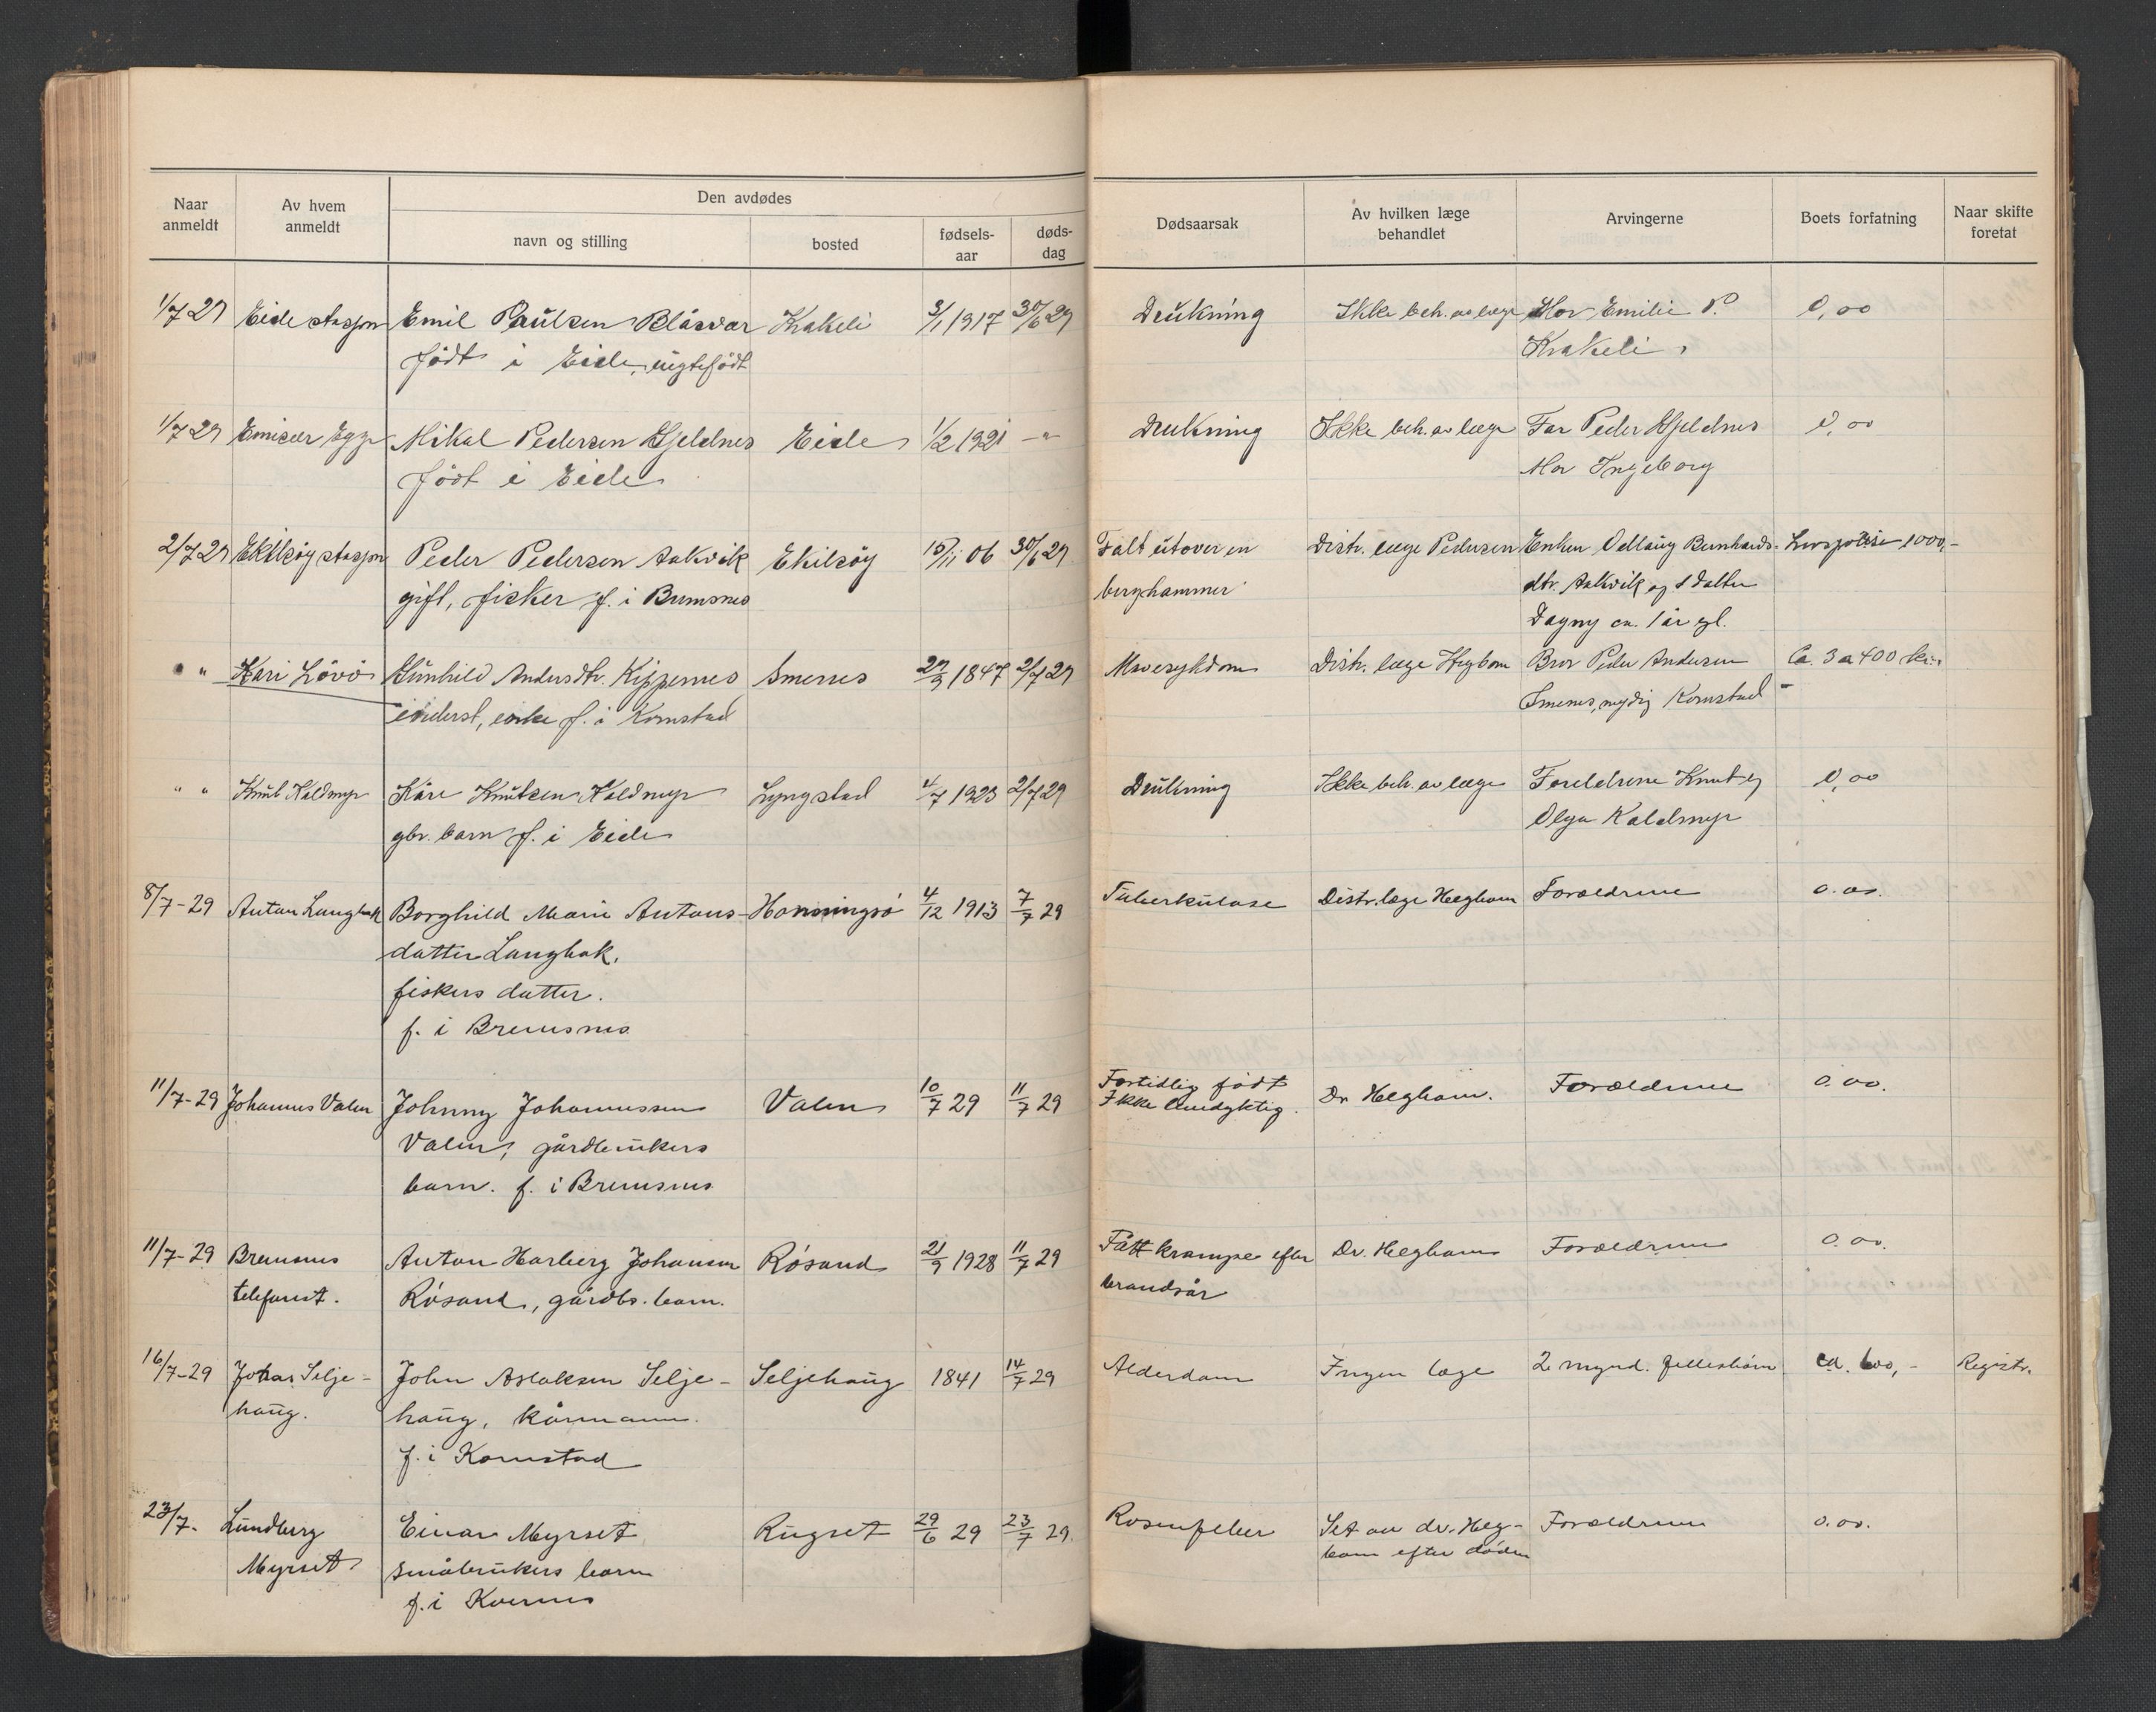 Naar anmeldt
Av hvem anmeldt
Den avdødes
navn og stilling
bosted
fødsels-aar
døds-dag
Dødsaarsak
Av hvilken læge behandlet
Arvingerne
Boets forfatning
Naar skifte foretat
1/7 29 Eide stasjon Emil Paulsen Blåsvær Krakeli 3/1 1917 30/6 29 Drukning Ikke beh. av læge Mor Emilie P. 0,00
født i Eide, ugtefødt Krakeli
1/7 29 Mikal Pedersen Hjeldnes Eide 1/2 1921 -"- Drukning Ikke beh. av læge Far Peder Hjeldnes 0,00
født i Eide Mor Ingeborg
2/7 29 Ekilsøy stasjon Peder Pedersen Aakvik Ekilsøy 15/11 06 30/6 29 Falt utover en Distr. læge Pedersen Enken Odlaug Bernhards- Livspolise 1000,-
gift, fisker f. i Bremsnes berghammer dtr. Aakvik og 1 datter
Dagny ca. 1 år gl.
" " Kari Lövö Gunhild Andersdtr. Smenes 27/9 1847 2/7 29 Mavesykdom Distr. læge Hegbom Bror Peder Andersen Ca. 3 a 400 kr.
inderst, enke f. i Kornstad Smenes, myndig Kornstad
" " Knut Kaldmyr Kåre Knutsen Kaldmyr Lyngstad 4/7 1923 2/7 29 Drukning Ikke beh. av læge Foreldrene Knut og 0,00
gbr. barn f. i Eide Olga Kaldmyr
8/7-29 Anton Langbak Borghild Marie Antons- Honningsø 4/12 1913 7/7 29 Tuberkulose Distr. læge Hegbom Forældrene 0.00.
datter Langbak,
fiskers datter.
f. i Bremsnes
11/7-29 Johannes Valen Johnny Johannessen Valen 10/7 29 11/7 29 Fortidlig født Dr Hegbom. Forældrene 0.00.
Ikke levedyktig.
Valen, gårdbrukers
barn. f. i Bremsnes
11/7-29 Bremsnes Anton Harberg Johansen Røsand 21/9 1928 11/7 29 Fått krampe efter Dr. Hegbom Forældrene 0.00.
telefonst. Røsand, gårdbr. barn. brandsår
16/7-29 Johan Selje- John Aslaksen Selje- Seljehaug 1841 14/7 29 Alderdom Ingen læge 2 mynd. fellesbørn ca. 600,- Registr.
haug. haug, kårmann.
f. i Kornstad
23/7- Lundberg Einar Myrset Rugset 29/6 29 23/7 29. Rosenfeber Set av dr. Heg- Forældrene 0.00.
Myrset småbrukers barn bom efter døden
f. i Kvernes